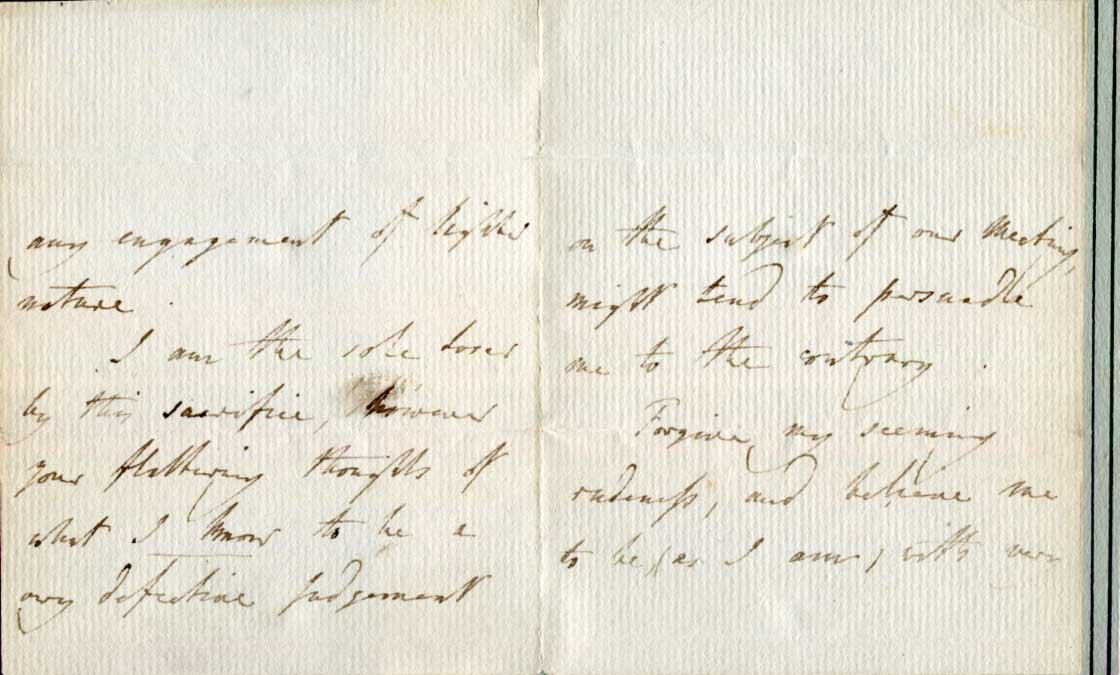 any engagement of lighter
nature.
I am the sole loser
by this sacrifice, however
your flattering thoughts of
what I know to be a
very defective judgement
on the subject of our Meeting,
might tend to persuade
me to the contrary.
Forgive my seeming
rudeness, and believe me
to be, (as I am) with